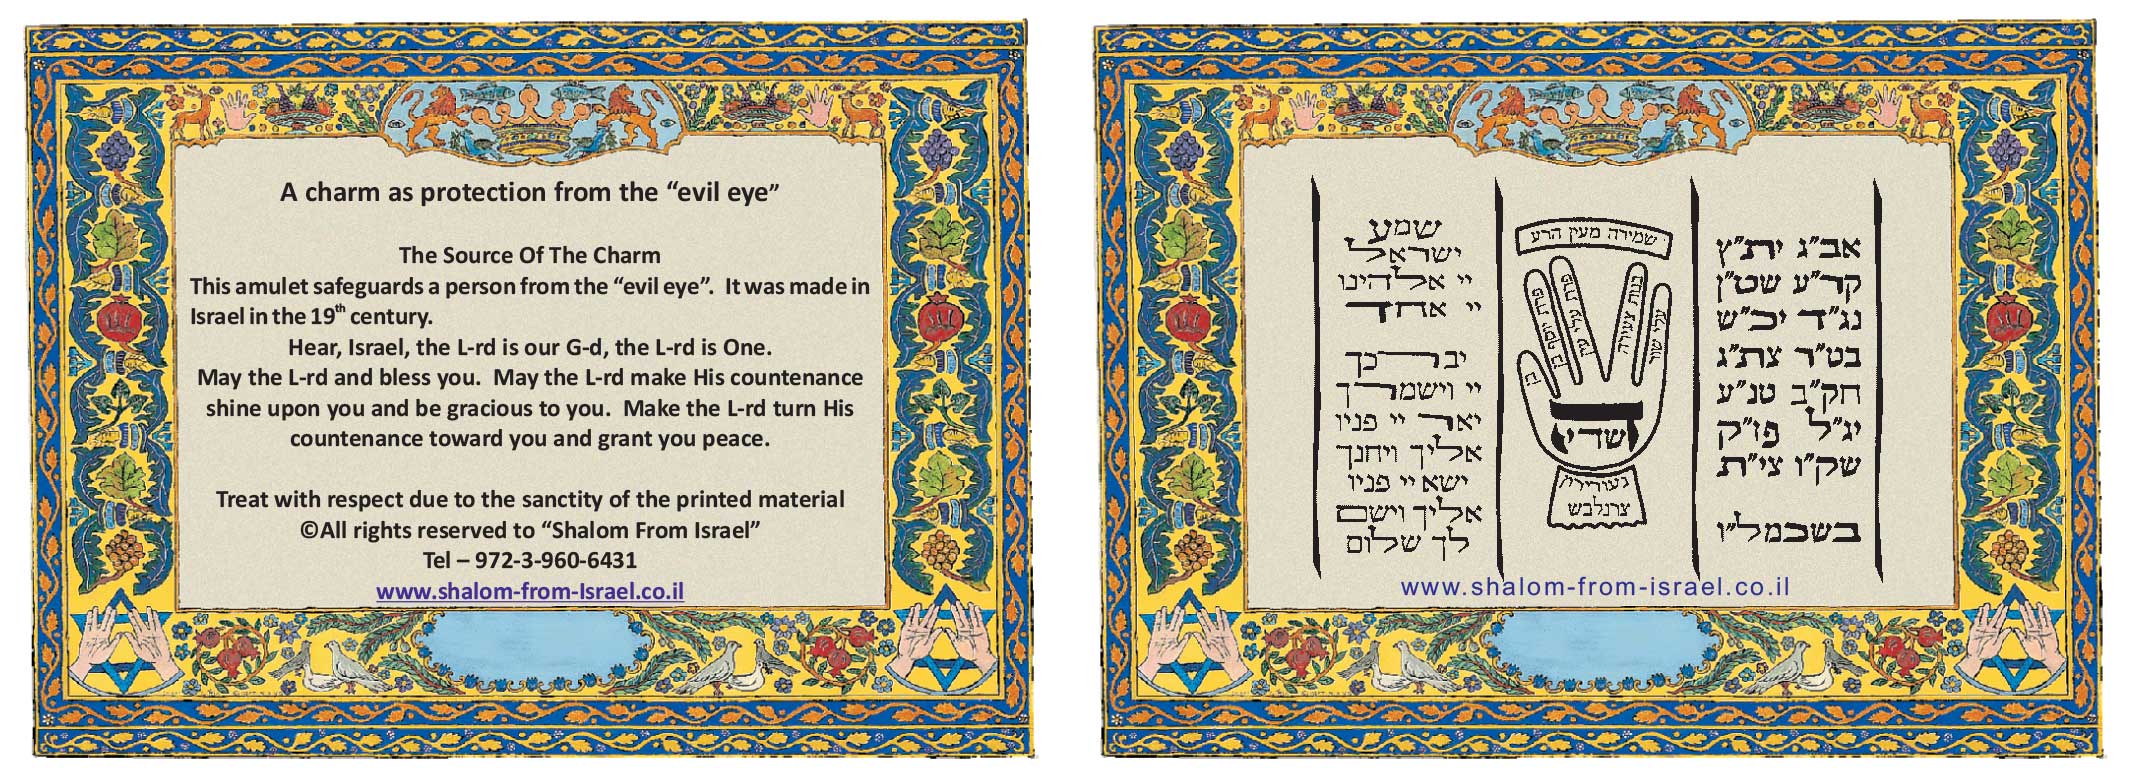 A charm as protection from the “evil eye”
The Source Of The Charm
This amulet safeguards a person from the “evil eye”. It was made in
Israel in the 19th century.
Hear, Israel, the L-rd is our G-d, the L-rd is One.
May the L-rd and bless you. May the L-rd make His countenance
shine upon you and be gracious to you. Make the L-rd turn His
countenance toward you and grant you peace.
Treat with respect due to the sanctity of the printed material
©All rights reserved to “Shalom From Israel”
Tel – 972-3-960-6431
www.shalom-from-Israel.co.il
אב"ג ית"ץ
קר"ע שט"ן
נג"ד יכ"ש
בט"ר צת"ג
חק"ב טנ"ע
יג"ל פז"ק
שק"ו צי"ת
בשכמל"ו
שמירה מעין הרע
בן
פרת יוסף בן
פרת עלי עין
בנות
עלי שור
שדי
צרנלבש
שמע
ישראל
יי אלהינו
יי אחד
יברכך
יי וישמרך
יאר יי פניו
אליך ויחנך
ישא יי פניו
אליך וישם
לך שלום
www.shalom-from-israel.co.il